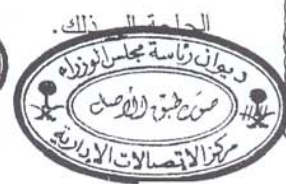 الحاجة إلى ذلك.
ديوان رئاسة مجلس الوزراء
صورة طبق الأصل
مركز الاتصالات الإدارية